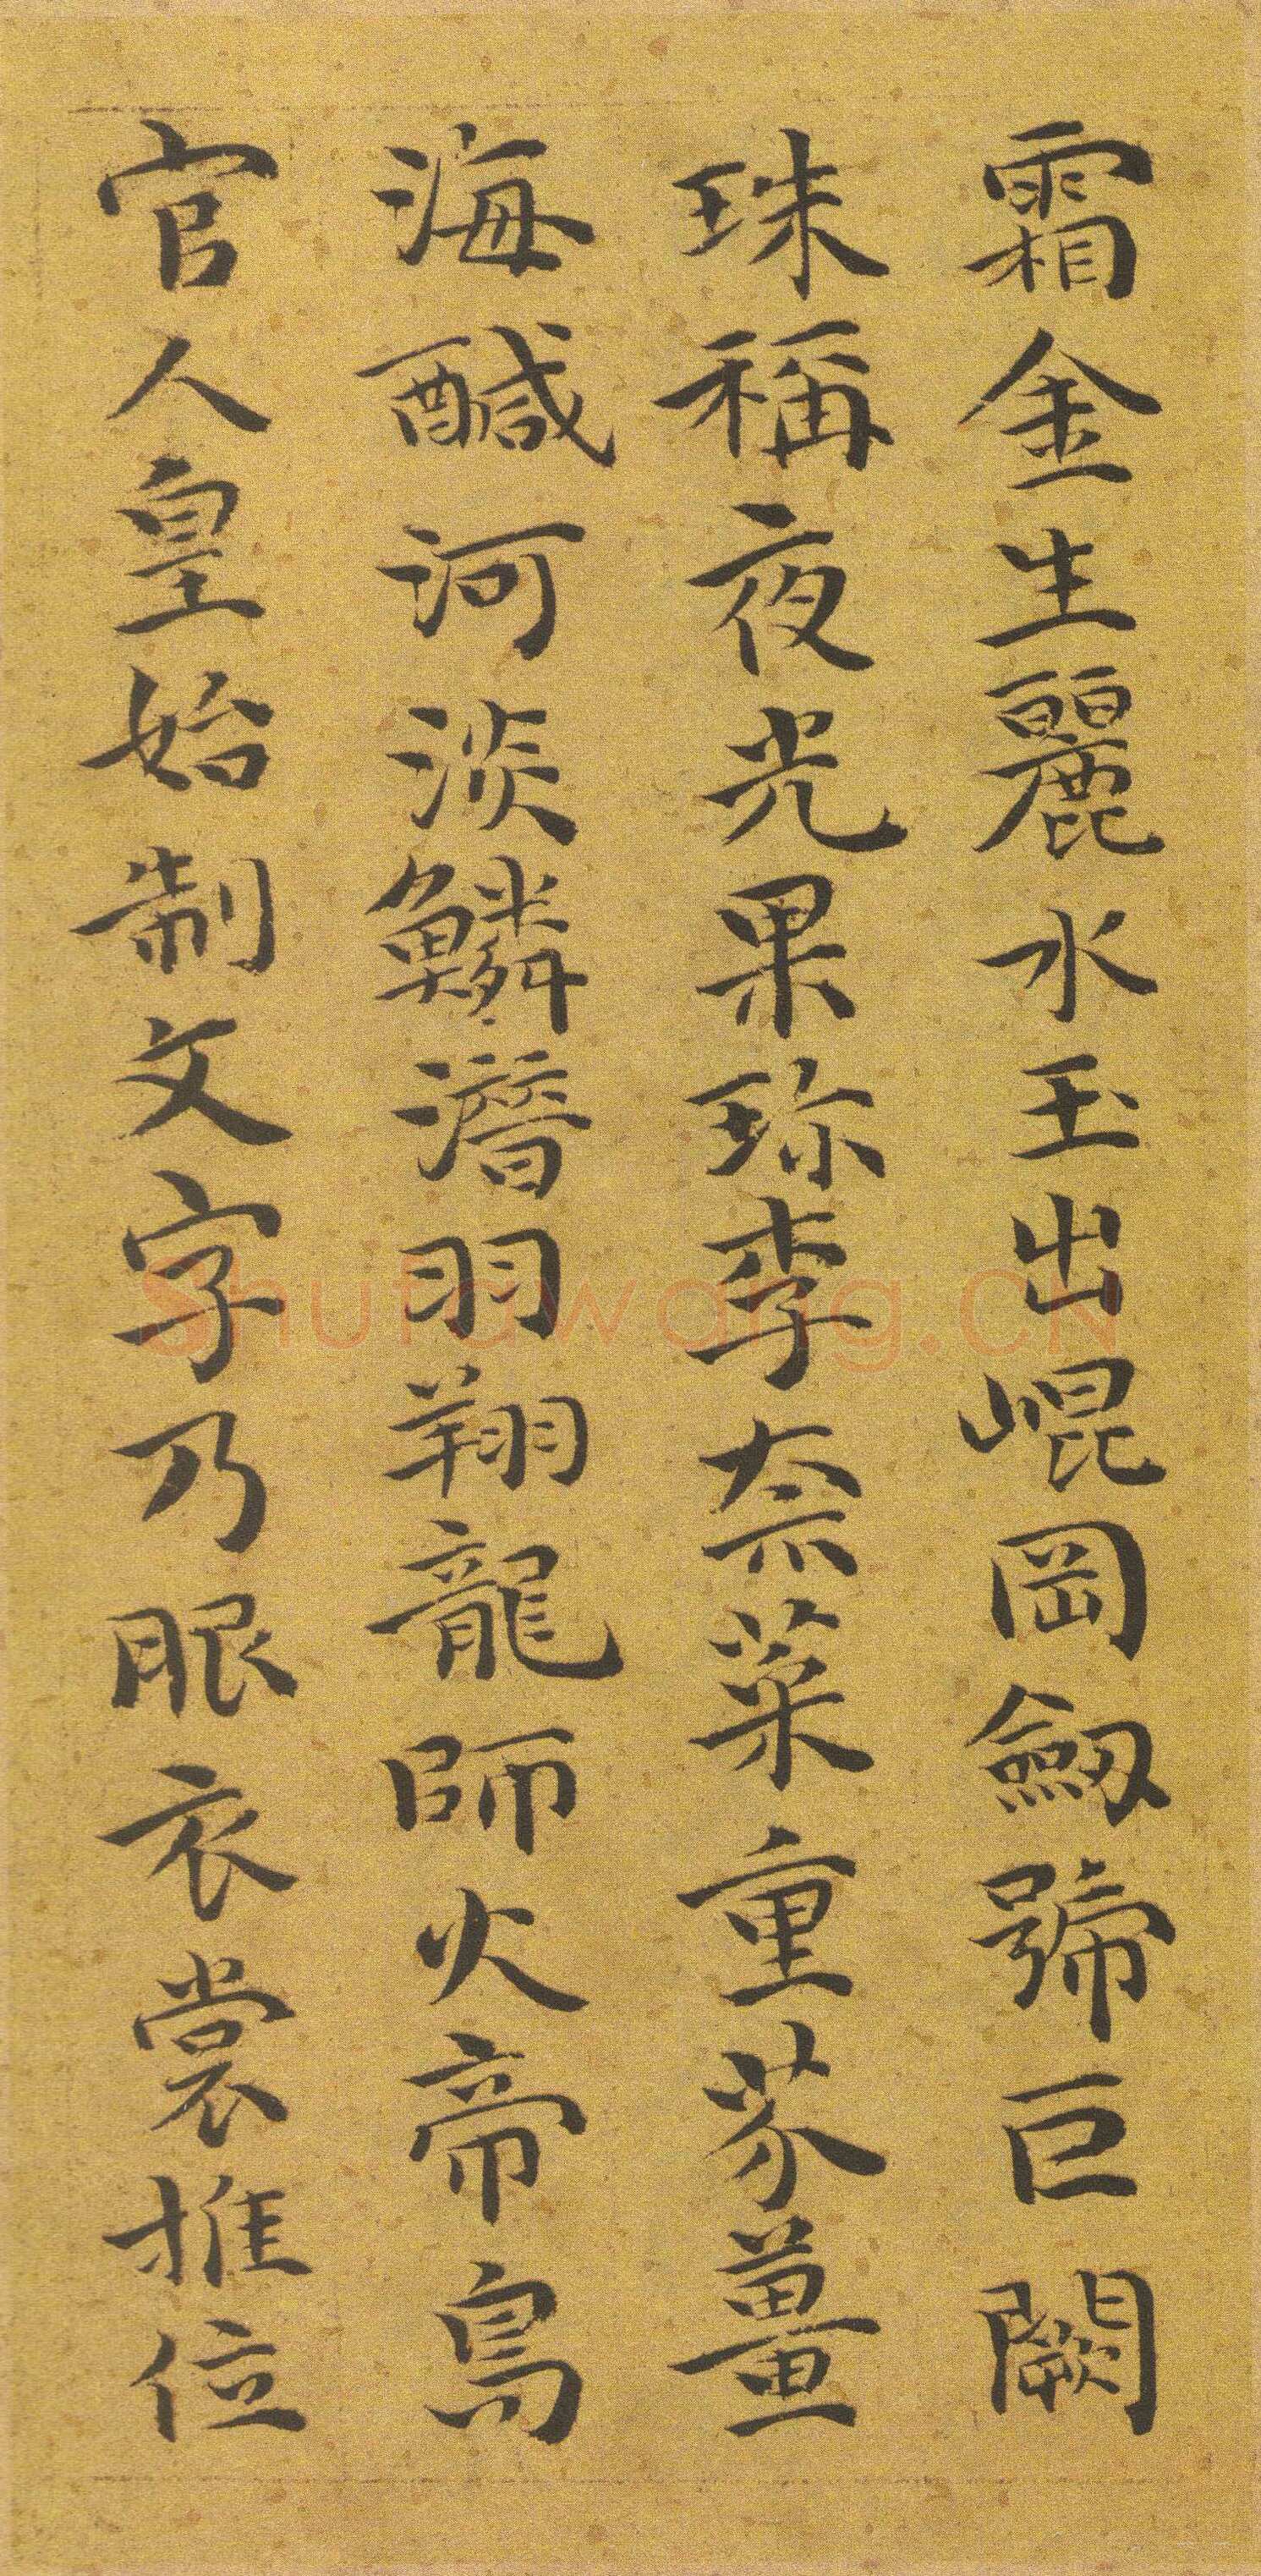 霜金生麗水玉出崐岡劒號巨闕
珠稱夜光果珎李奈菜重芥薑
海醎河淡鱗潛羽翔龍師火帝鳥
官人皇始制文字乃服衣裳推位
Shufawang.CN